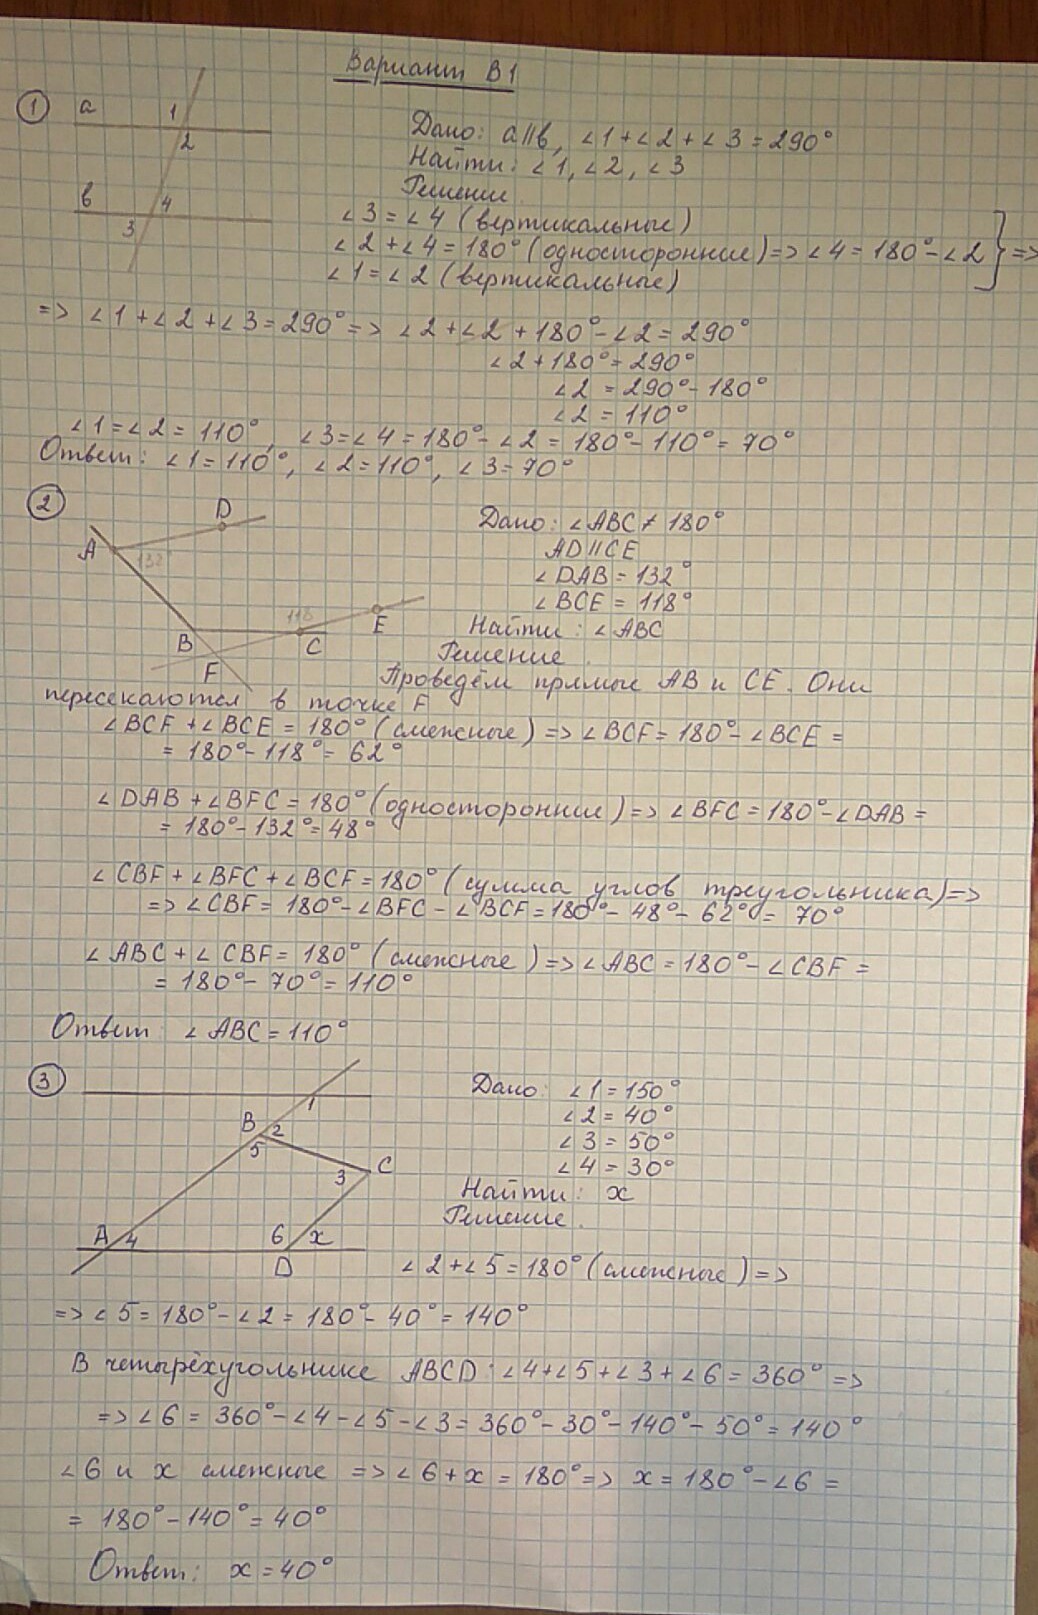 Вариант В1
① a 1 2 Дано: a∥b, ∠1+∠2+∠3=290°
Найти: ∠1, ∠2, ∠3
Решение.
b 4 3
∠3=∠4 (вертикальные)
∠2+∠4=180° (односторонние)=>∠4=180°-∠2 } =>
∠1=∠2 (вертикальные)
=> ∠1+∠2+∠3=290°=> ∠2+∠2+180°-∠2=290°
∠2+180°=290°
∠2=290°-180°
∠2=110°
∠1=∠2=110°, ∠3=∠4=180°-∠2=180°-110°=70°
Ответ: ∠1=110°, ∠2=110°, ∠3=70°
② D A 132° B 118 C E F
Дано: ∠ABC≠180°
AD∥CE
∠DAB=132°
∠BCE=118°
Найти: ∠ABC
Решение.
Проведём прямые AB и CE. Они
пересекаются в точке F
∠BCF+∠BCE=180° (смежные)=>∠BCF=180°-∠BCE=
=180°-118°=62°
∠DAB+∠BFC=180° (односторонние)=>∠BFC=180°-∠DAB=
=180°-132°=48°
∠CBF+∠BFC+∠BCF=180° (сумма углов треугольника)=>
=>∠CBF=180°-∠BFC-∠BCF=180°-48°-62°=70°
∠ABC+∠CBF=180° (смежные)=>∠ABC=180°-∠CBF=
=180°-70°=110°
Ответ: ∠ABC=110°
③ 1 B 2 5 3 C A 4 6 x D
Дано: ∠1=150°
∠2=40°
∠3=50°
∠4=30°
Найти: x
Решение.
∠2+∠5=180° (смежные)=>
=>∠5=180°-∠2=180°-40°=140°
В четырёхугольнике ABCD: ∠4+∠5+∠3+∠6=360°=>
=>∠6=360°-∠4-∠5-∠3=360°-30°-140°-50°=140°
∠6 и x смежные =>∠6+x=180°=> x=180°-∠6=
=180°-140°=40°
Ответ: x=40°